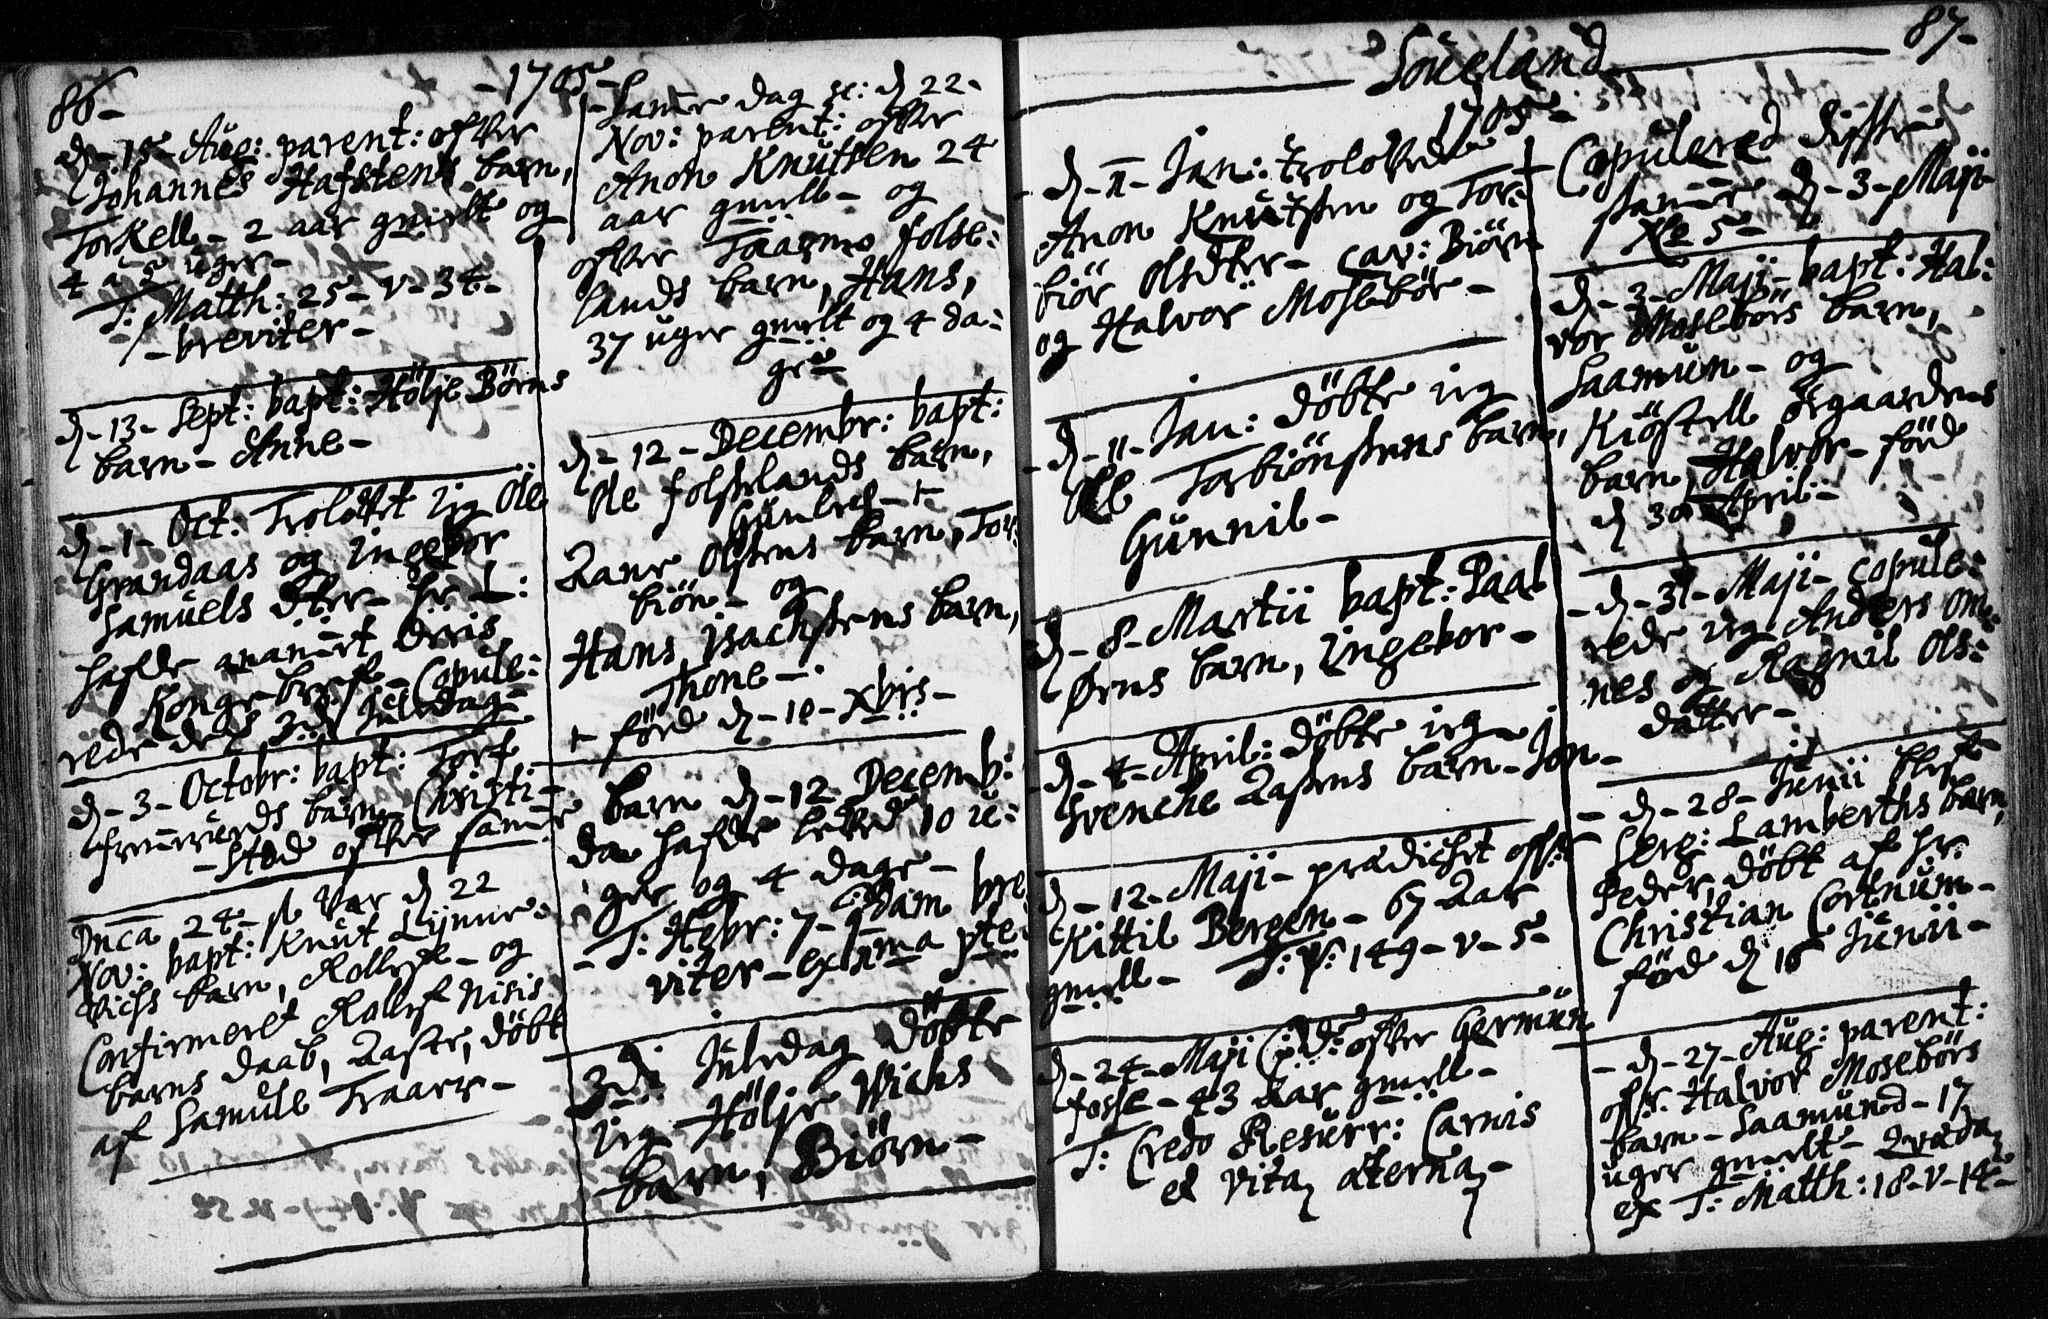 86-
-1705-
d-15-Aug: parent: offver
Johannes Hafstens barn,
Torkell- 2 aar gmelt og
4 a 5 uger-
T: Matth: 25-v-34-
-breviter-
d-13-Sept: bapt: Hölje Börns
barn-Anne-
d-1-Oct: Troloffvet ieg Ole
Grandaas og Ingebor
Samuels dter- hr L:
hafde
Konge-breff-Copule:
rede dem 3di Juledag-
d-3-Octobr: bapt: Torf
barn Christi-
-Sted offver samme
Dnca 24- Var d 22
Nov: bapt: Knut Lynne-
vichs barn, Rolleff- og
Confirmeret Rolleff Nisis
barns daab, Aaste, döbt
af Samuel Traaer-
-Samme dag sc: d 22-
Nov: parent: offver
Anon Knutsen 24
aar gmell- og
offver Taarmo folse:
lands barn, Hans,
37 uger gmelt og 4 da-
ge-
d-12-Decembr: bapt:
Ole folselands barn,
Gunlef-
Aane Olsens barn, Tor-
biön- og
Hans Isachsens barn,
Thone-
föed d-10-Xbris-
barn d-12 Decemb:
da hafde leffvet 10 u:
ger og 4 dage-
-T: Hebr: 7- qdam bre
viter- ex pma pte
3di Juledag döbte
ieg Hölje Vichs
barn, Biörn-
Söueland
87-
1705-
-d-1-Jan: troloffvede
Anon Knutsen og Tor-
biör Olsdter- cav: Biörn
og Halvor Mosebör-
-d-11-Jan: döbte ieg
Ole Torbiönsens barn,
Gunnil-
d-8-Martii bapt: Paal
Ørns barn, Ingebor-
d-4-April: döbte ieg
Svenche Aasens barn-Jon-
d-12-Maji-prædichet off:
Kittil Bergen-67 Aar
gmell- T: Ps: 149-v-5-
d-24-Maji offver Germun
fosse-43 Aar gmell-
T: Credo Resurr: Carnis
et vitæ æterna-
Copulered disse
samme d-3-Maji
d-3-Maji-bapt: Hal:
vor Mosebörs barn,
Saamun- og
Kiöstell Eegaardens
barn, Halvor- föed
d 30 April-
-d-31-Maji- copule:
rede ieg Anders Om-
nes og Ragnil Ols-
datter-
-d-28-Junii bleff
Serg: Lamberths barn,
Peder, döbt af hr.
Christian Cortnum-
föed d 16 Junii-
-d-27-Aug: parent:
offr. Halvor Mosebörs
barn-Saamund-17
uger gmelt-
ex T: Matth: 18-v-14-